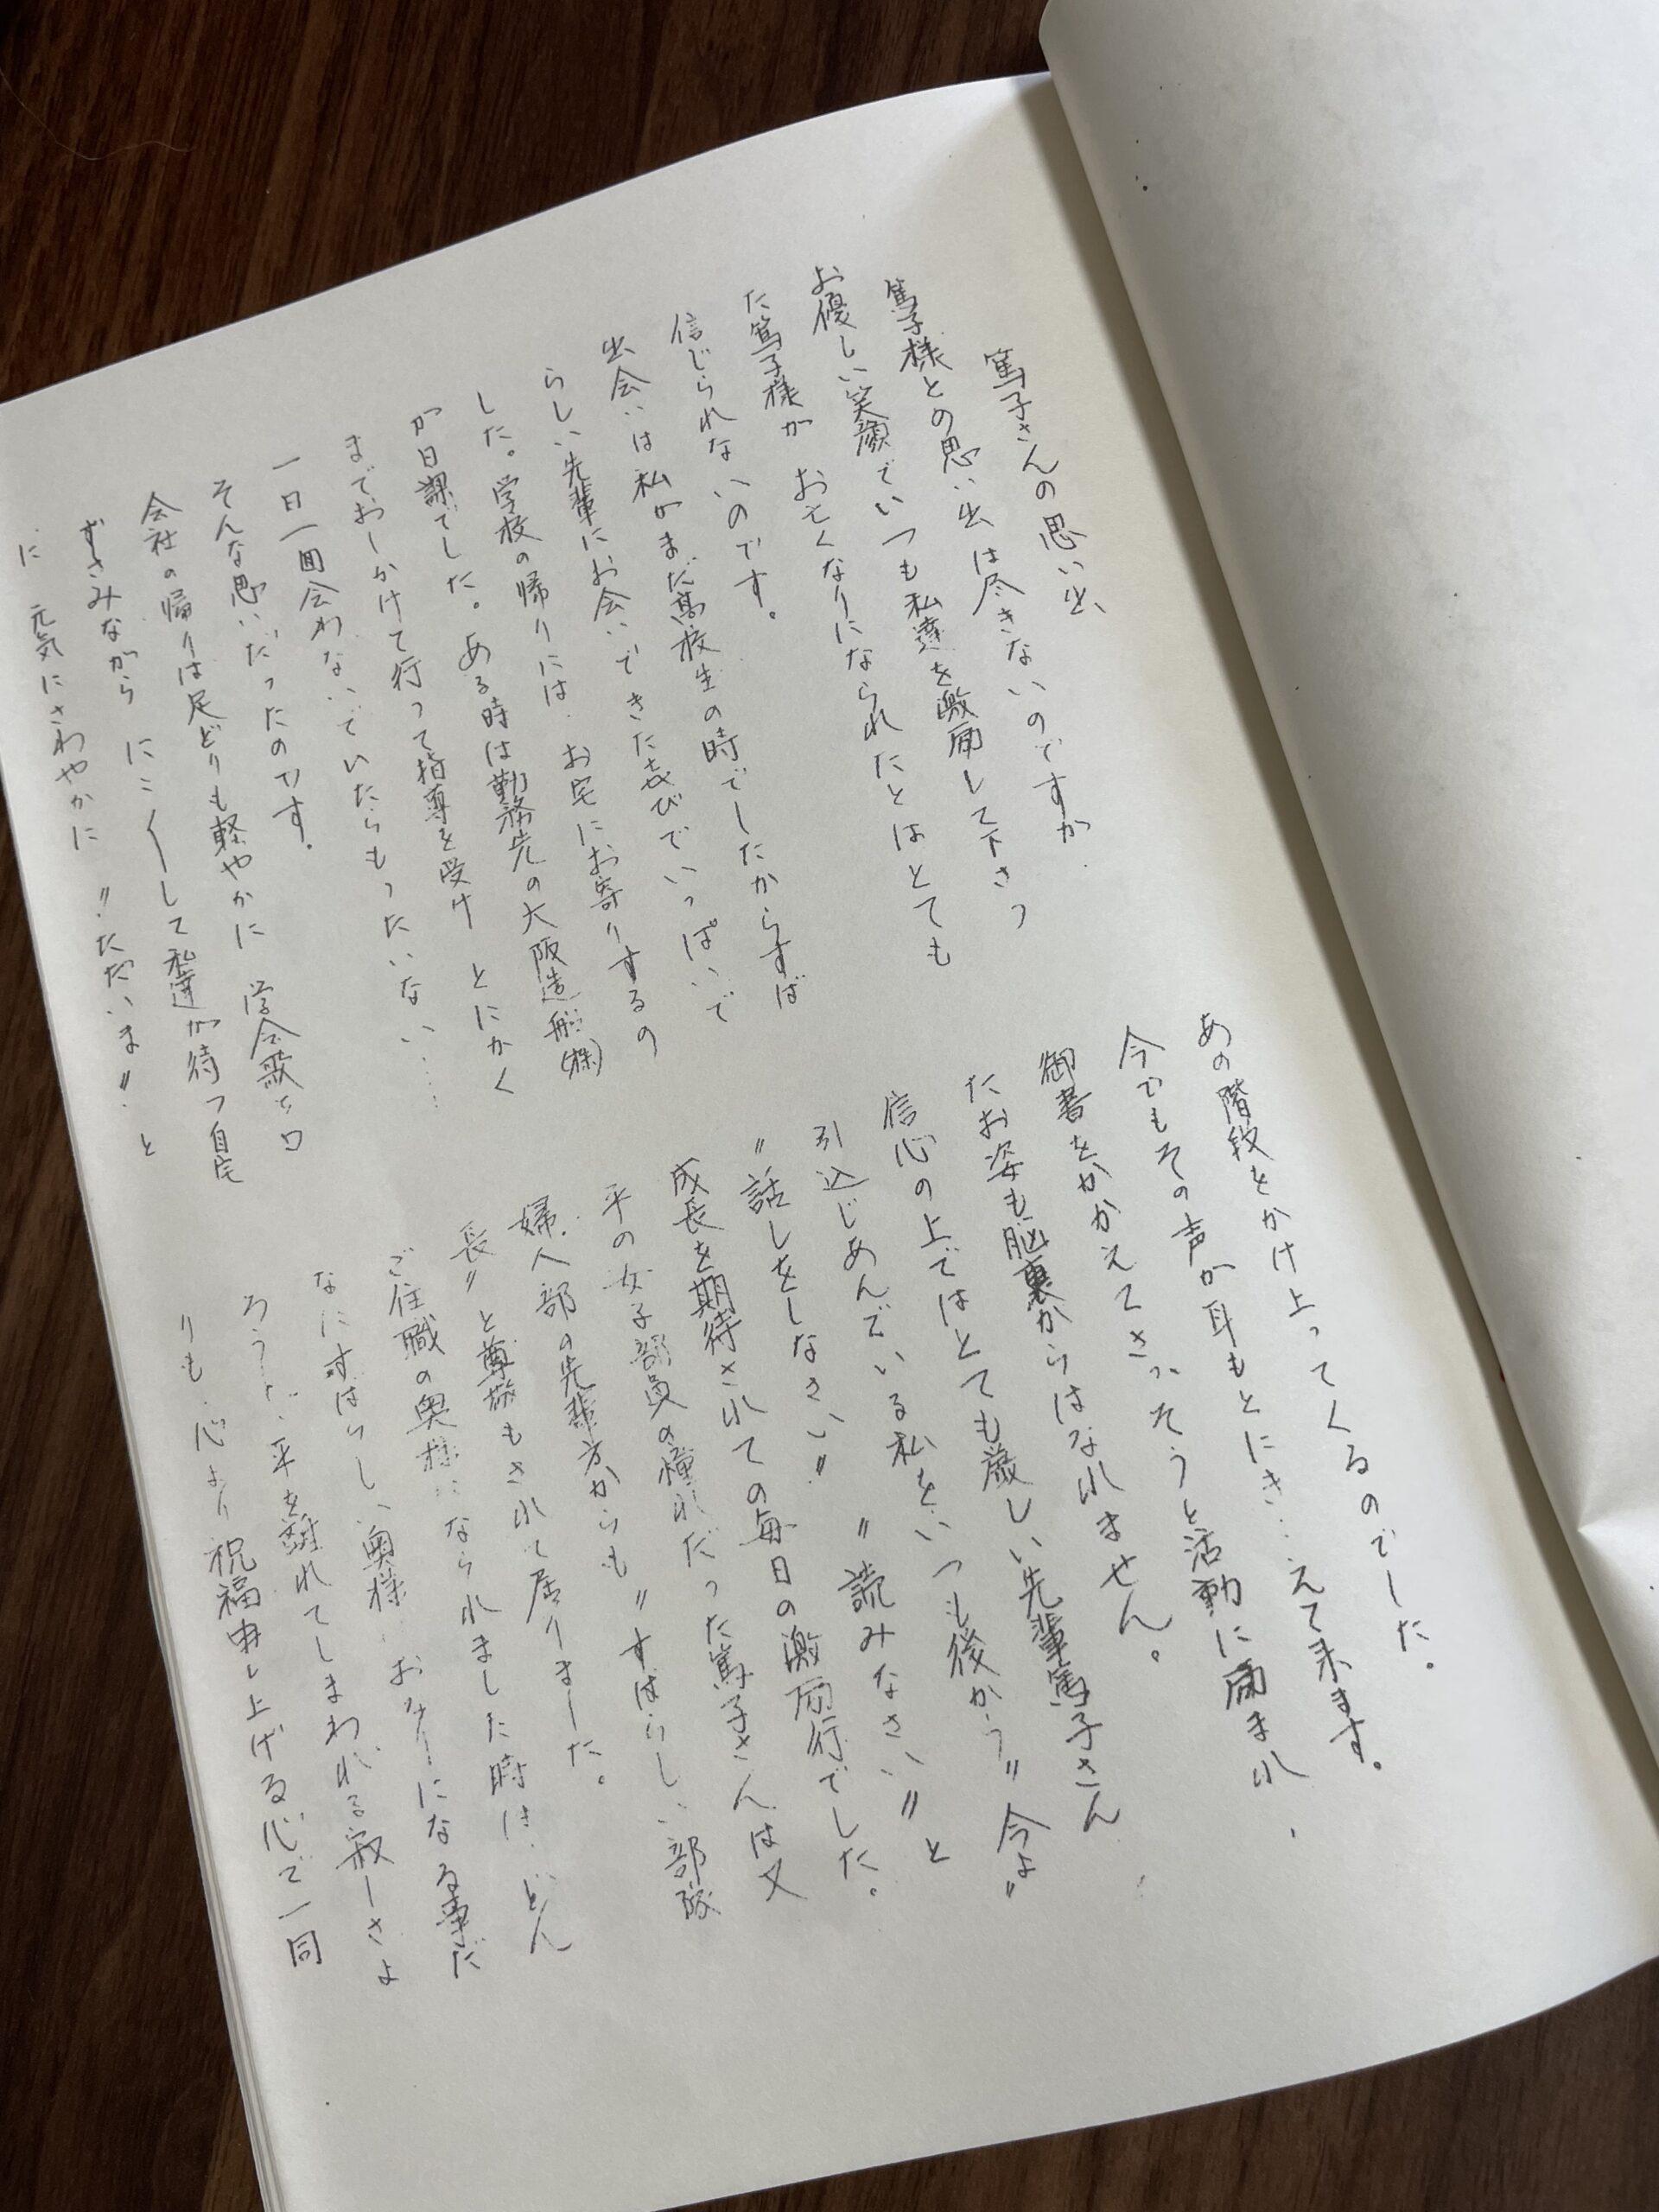 篤子さんの思い出
篤子様との思い出は尽きないのですが
お優しい笑顔でいつも私達を激励して下さっ
た篤子様が お亡くなりになられたとはとても
信じられないのです。
出会いは私がまだ高校生の時でしたからすば
らしい先輩にお会いできた喜びでいっぱいで
した。学校の帰りには お宅にお寄りするの
が日課でした。ある時は勤務先の大阪造船(株)
までおしかけて行って指導を受け とにかく
一日一回会わないでいたらもったいない……
そんな思いだったのです。
会社の帰りは足どりも軽やかに 学会歌を口
ずさみながら にこ〱して私達が待つ自宅
に 元気にさわやかに 〃ただいま〃 と
あの階段をかけ上ってくるのでした。
今でもその声が耳もとにきこえて来ます。
御書をかかえてさっそうと活動に励まれ
たお姿も脳裏からはなれません。
信心の上ではとても厳しい先輩篤子さん
引込じあんでいる私をいつも後から〃今よ〃
〃話しをしなさい〃 〃読みなさい〃と
成長を期待されての毎日の激励行でした。
平の女子部員の憧れだった篤子さんは又
婦人部の先輩方からも〃すばらしい部隊
長〃と尊敬もされて居りました。
ご住職の奥様になられました時は どん
なにすばらしい奥様 おなりになる事だ
ろうと、平を離れてしまわれる寂しさよ
りも 心より祝福申し上げる心で一同